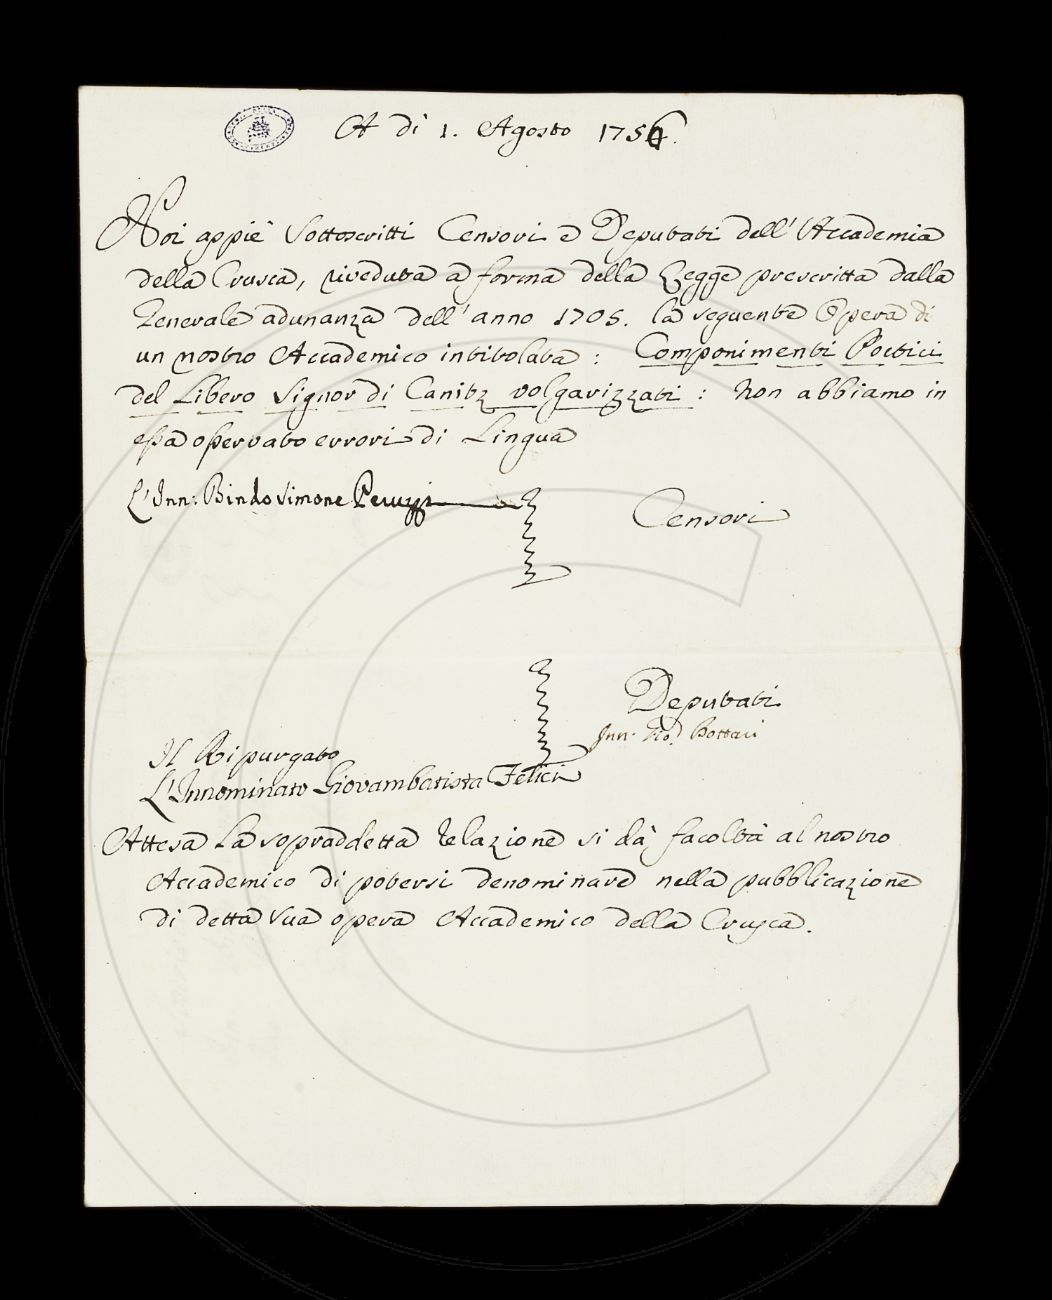 A dì 1. Agosto 1756.
Noi appiè Sottoscritti Censori e Deputati dell'Accademia
della Crusca, riveduta a forma della Legge prescritta dalla
Generale adunanza dell'anno 1705. la seguente Opera di
un nostro Accademico intitolata: Componimenti Poetici
del Libero Signor di Canitz volgarizzati: Non abbiamo in
essa osservato errori di Lingua
L'Inn: Bindo Simone Peruzzi
Censori
Deputati
Inn. Gio. Bottari
Il Ripurgato
L'Innominato Giovambatista Felici
Attesa la sopraddetta relazione si dà facoltà al nostro
Accademico di potersi denominare nella pubblicazione
di detta sua opera Accademico della Crusca.